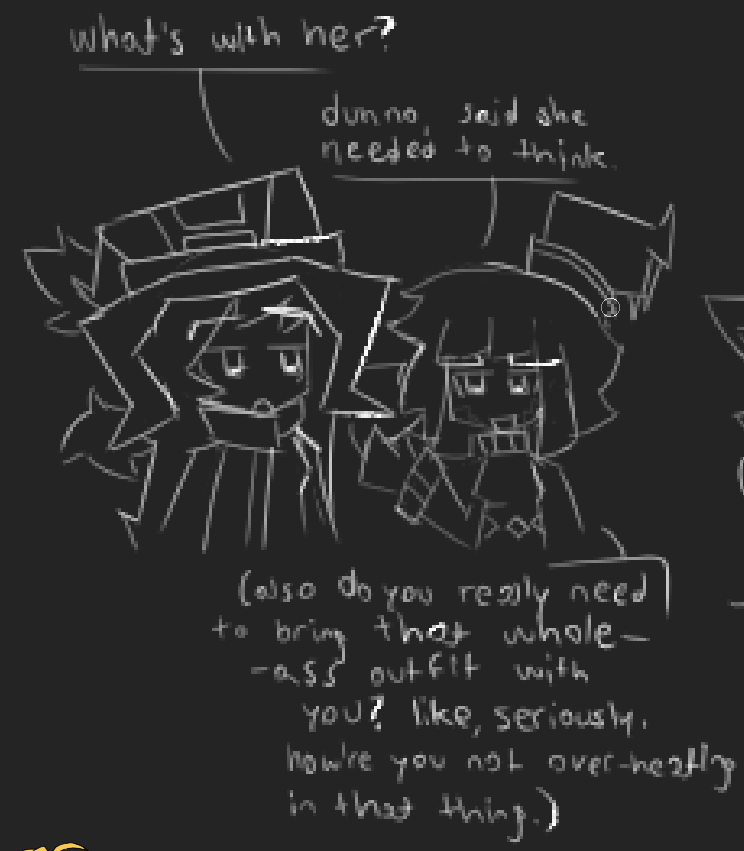 what's with her?
dunno, said she
needed to think.
(also do you really need
to bring that whole-
-ass outfit with
you? like, seriously.
how're you not over-heating
in that thing.)